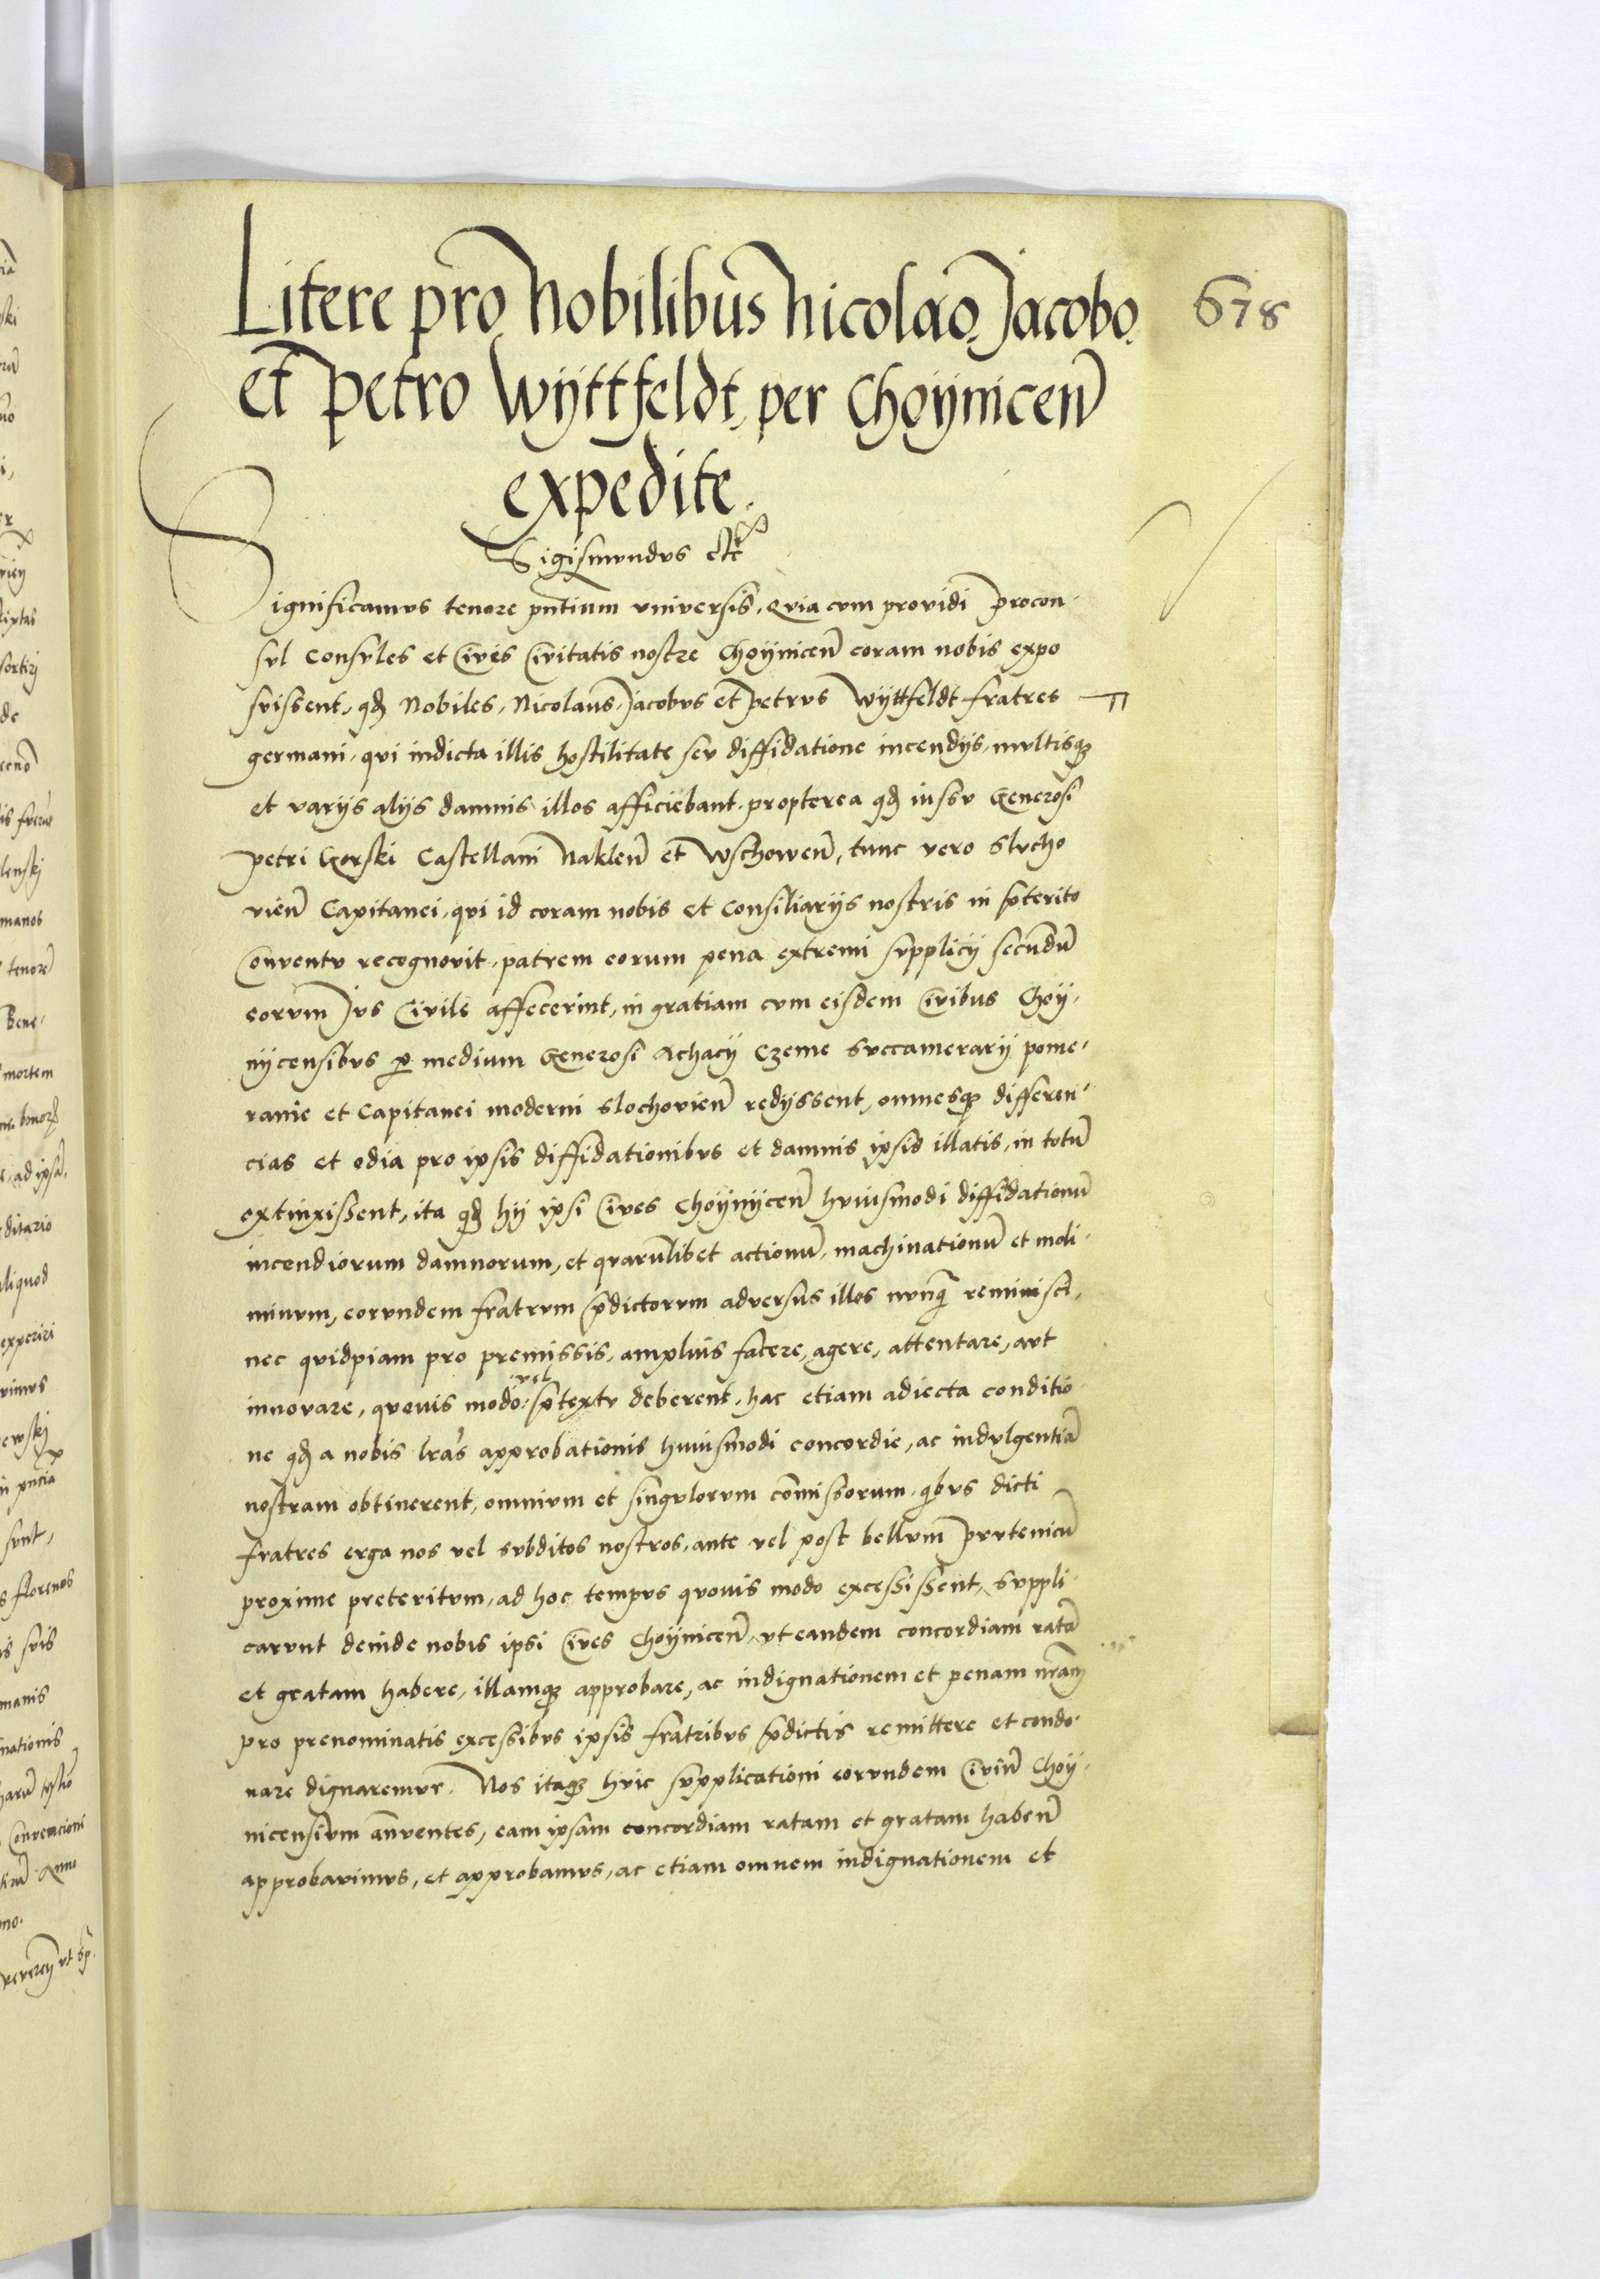 Litere pro Nobilibus Nicolao Jacobo
678
et Petro Wyttfeldt, per Choynicen̄
expedite.
Sigismundus etc
Significamvs tenore pn̄tium vniversis, Qvia cvm providi procon-
svl Consvles et Cives Civitatis nostre Choynicen̄ coram nobis expo
svissent, qđ Nobiles, Nicolaus, Jacobvs et Petrvs Wyttfeldt fratres
germani, qvi indicta illis hostilitate sev diffidatione incendijs, mvltisqz
et varijs alijs damnis illos afficiebant, propterea qđ iussv Generosi
Petri Gorski Castellani Naklen̄ et Wschowen̄, tunc vero Slvcho
vien̄ Capitanei, qvi id coram nobis et Consiliarijs nostris in p̄terito
Conventv recognovit, patrem eorum pena extremi svpplicij secundū
eorvm Jvs Civile affecerint, in gratiam cvm eisdem Civibus Choy-
nycensibvs p̱ medium Generosi Achacij Czeme Svccamerarij Pome-
ranie et Capitanei moderni Slochovien̄ redijssent, omnesqz differen-
cias et odia pro ipsis diffidationibvs et damnis ipsis illatis, in totū
extinxissent, ita qđ hij ipsi Cives Choynycen̄ hviusmodi diffidationū
incendiorum damnorum, et qvarūlibet actionū, machinationū et moli-
minvm, eorvndem fratrvm p̄dictorvm adversus illos nvnq̄ reminisci,
nec qvidpiam pro premissis, amplius facere, agere, attentare, avt
innovare, qvovis modo vel p̄textv deberent, hac etiam adiecta conditio
ne qđ a nobis lr̄as approbationis huiusmodi concordie, ac indvlgentiā
nostram obtinerent, omnivm et singvlorvm com̄issorum, qibvs dicti
fratres erga nos vel svbditos nostros, ante vel post bellvm Prvtenicū
proxime preteritvm, ad hoc tempvs qvovis modo excessissent, Svppli-
carvnt deinde nobis ipsi Cives Choynicen̄, vt eandem concordiam ratā
et gratam habere, illamqz approbare, ac indignationem et penam nr̄am
pro prenominatis excessibvs ipsis fratribvs p̄dictis remittere et condo-
nare dignaremvr. Nos itaqz hvic svpplicationi eorvndem Civiū Choy-
nicensivm an̄ventes, eam ipsam concordiam ratam et gratam haben̄
approbavimvs, et approbamvs, ac etiam omnem indignationem et